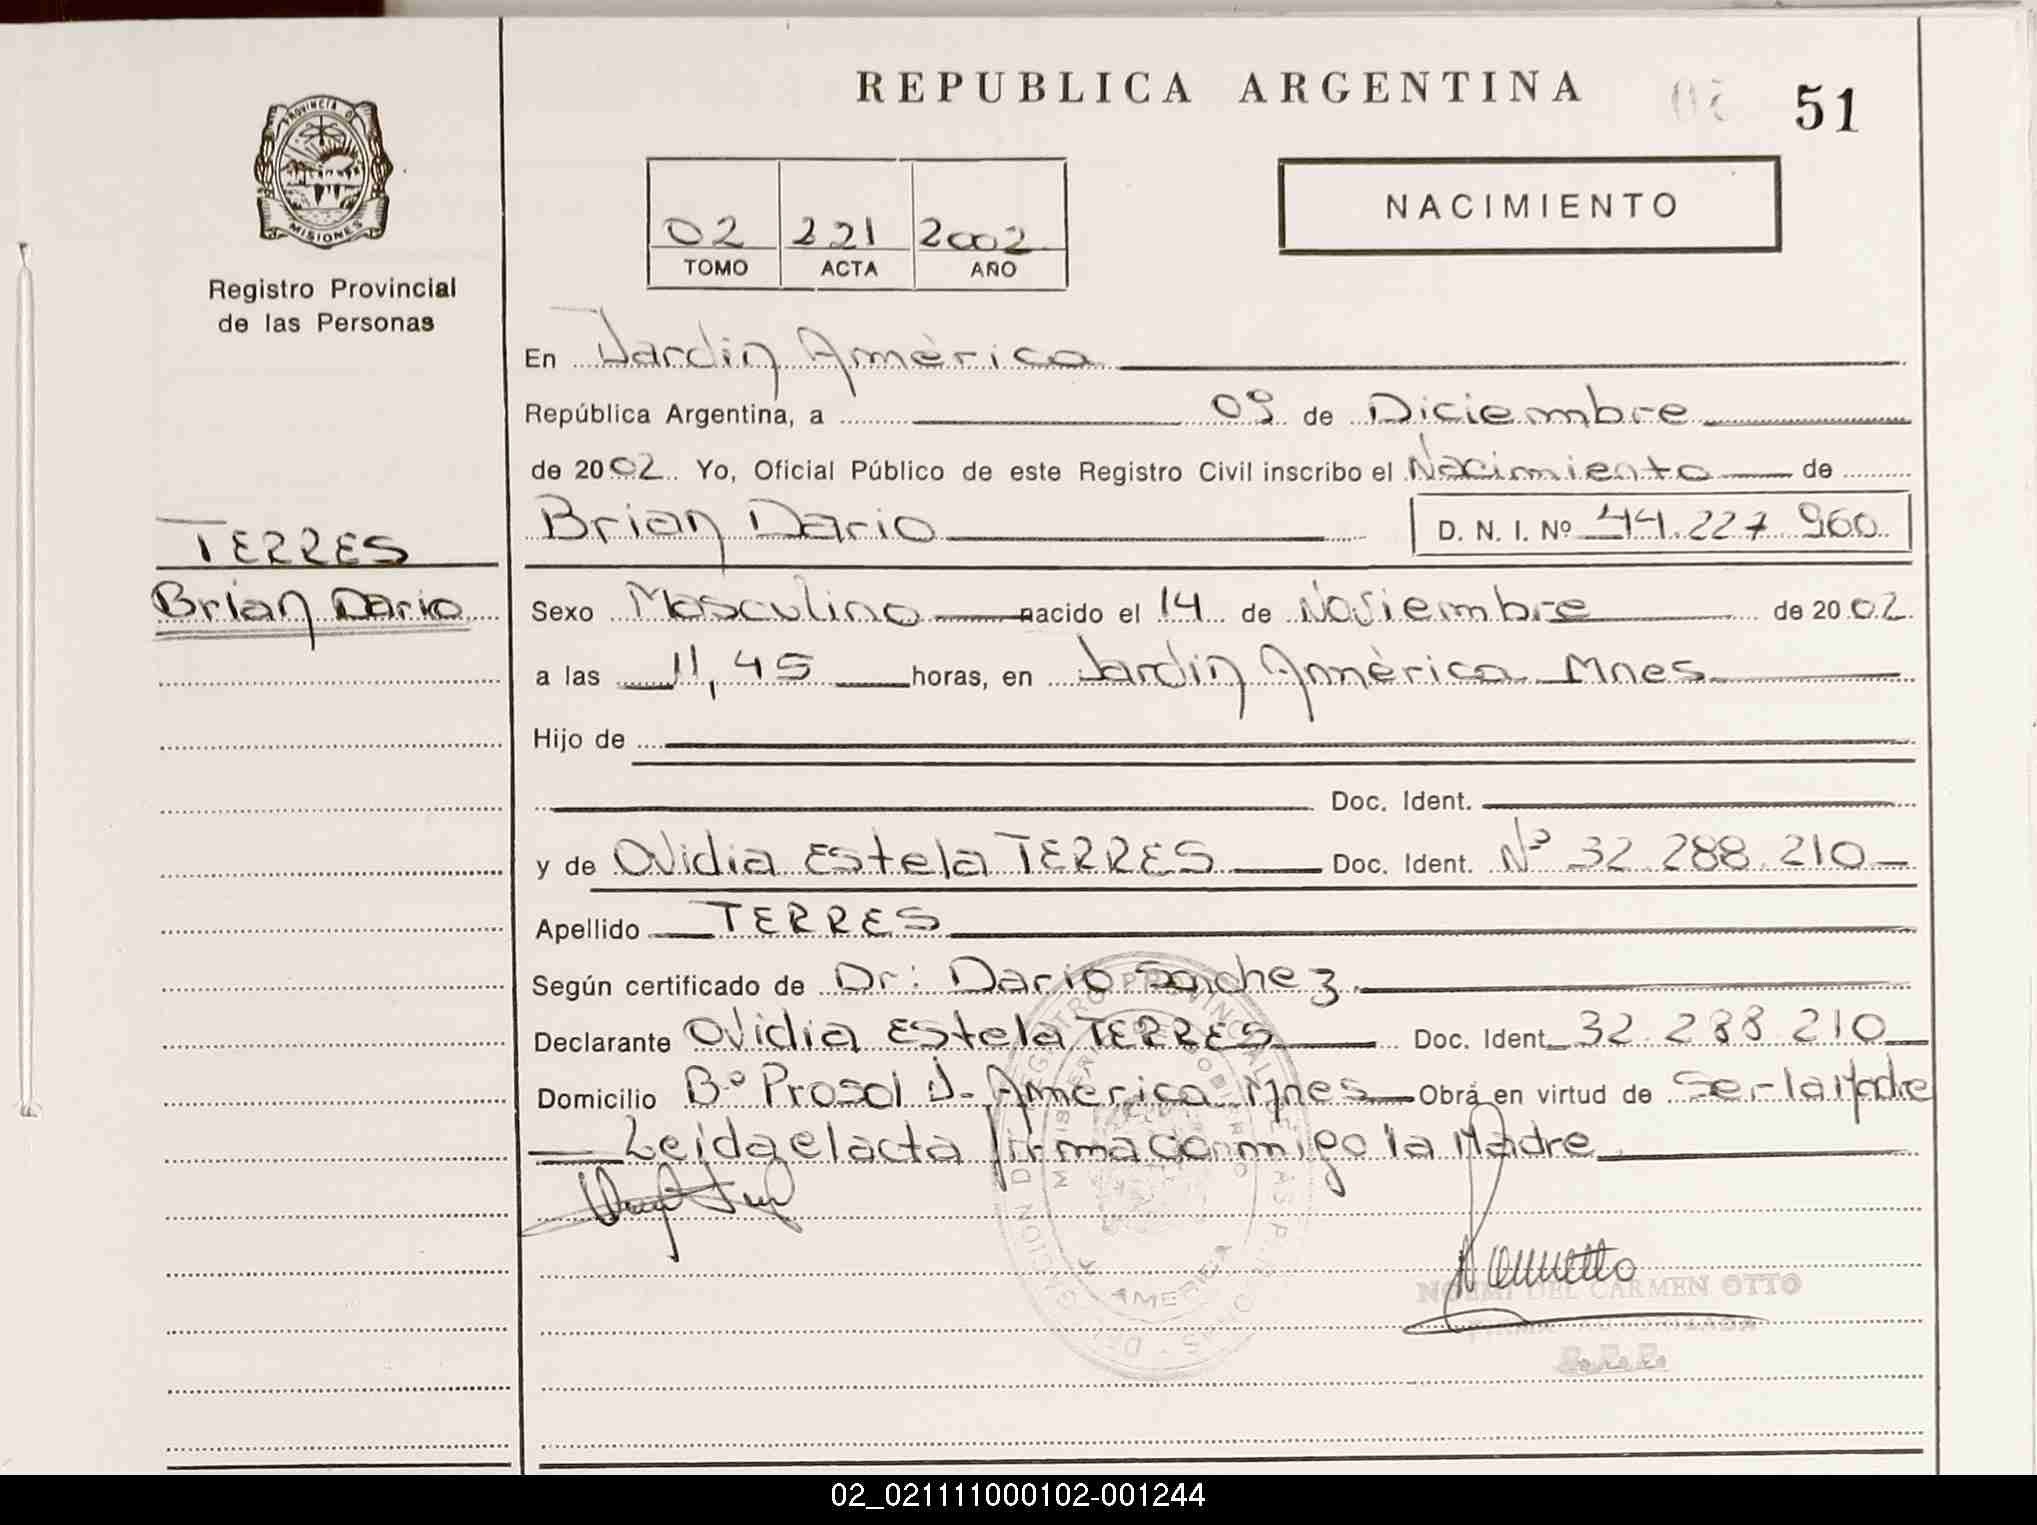 REPUBLICA ARGENTINA
51
PROVINCIA DE
MISIONES
Registro Provincial
de las Personas
02 221 2002
TOMO ACTA AÑO
NACIMIENTO
En Jardin América
República Argentina, a 09 de Diciembre
de 2002. Yo, Oficial Público de este Registro Civil inscribo el Nacimiento de
Brian Dario D. N. I. Nº 44.227.960
TERRES
Brian Dario
Sexo Masculino nacido el 14 de Noviembre de 2002.
a las 11,45 horas, en Jardin América Mnes
Hijo de
Doc. Ident.
y de Ovidia Estela TERRES Doc. Ident. Nº 32.288.210
Apellido TERRES
Según certificado de Dr: Dario Sanchez
Declarante Ovidia Estela TERRES Doc. Ident. 32.288.210
Domicilio Bº Prosol J. América Mnes Obra en virtud de Ser la Madre
Leida el acta firma conmigo la Madre
NOEMI DEL CARMEN OTTO
02_021111000102-001244